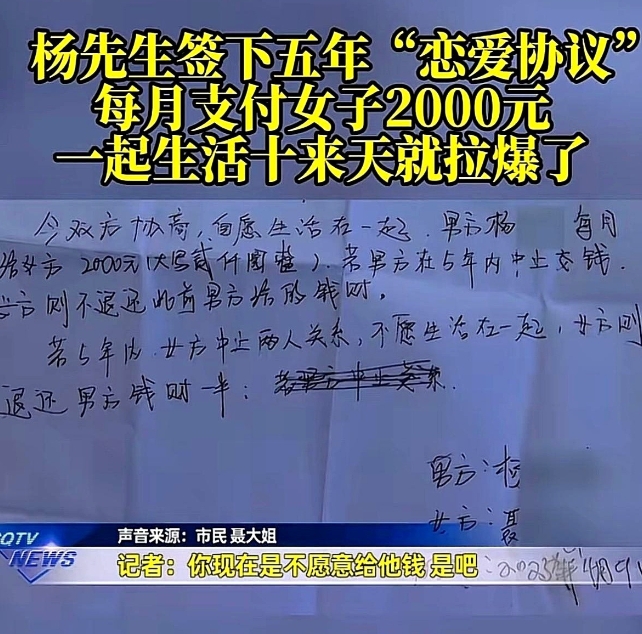 杨先生签下五年“恋爱协议”
每月支付女子2000元
一起生活十来天就拉爆了
今双方协商，自愿生活在一起，男方杨 每月
给女方2000元(大写贰仟圆整)。若男方在5年内中止交钱，
女方则不退还此前男方给的钱财。
若5年内女方中止两人关系，不愿生活在一起，女方则
退还男方钱财一半；
男方：杨
女方：聂
CQTV
NEWS
声音来源：市民 聂大姐
记者：你现在是不愿意给他钱 是吧